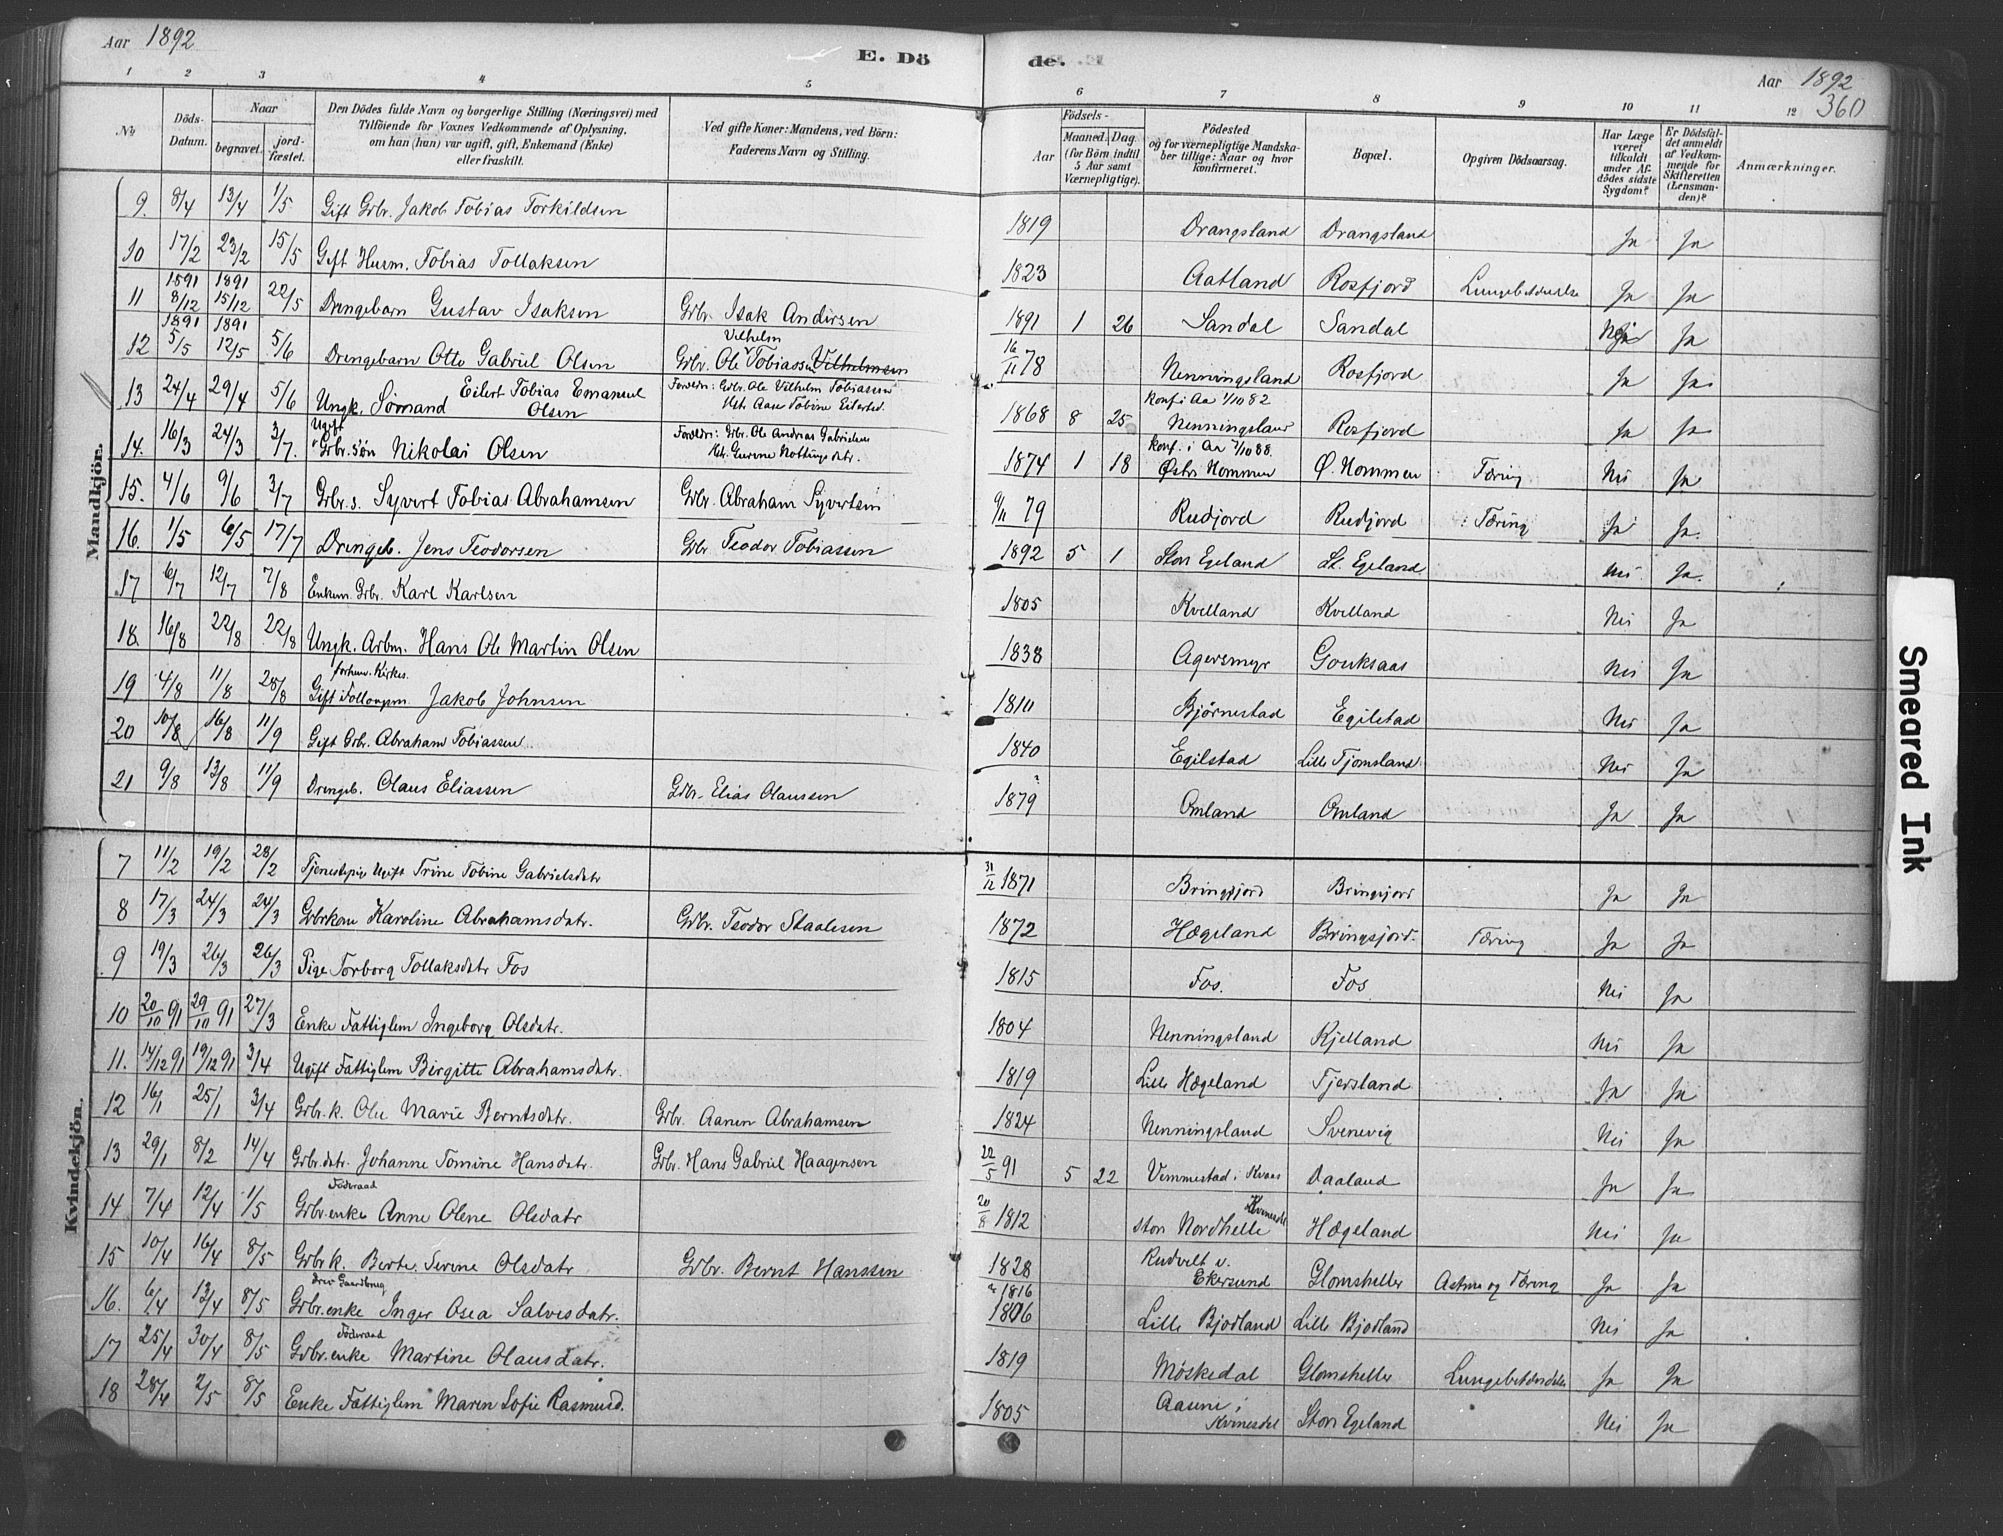 Aar 1892
E. Dö
de.
Aar 1892
360
1 2 3 4 5 6 7 8 9 10 11 12
No
Döds-Datum.
Naar
begravet.
jord-fæstet.
Den Dödes fulde Navn og borgerlige Stilling (Næringsvei) med
Tilföiende for Voxnes Vedkommende af Oplysning,
om han (hun) var ugift, gift, Enkemand (Enke)
eller fraskilt.
Ved gifte Koner: Mandens, ved Börn:
Faderens Navn og Stilling.
Födsels-
Aar
Maaned. Dag.
(for Börn indtil
5 Aar samt
Værnepligtige).
Födested
og for værnepligtige Mandska-
ber tillige: Naar og hvor
konfirmeret.
Bopæl.
Opgiven Dödsaarsag.
Har Læge
været
tilkaldt
under Af-
dödes sidste
Sygdom?
Er Dödsfal-
det anmeldt
af Vedkom-
mende for
Skifteretten
(Lensman-
den)?
Anmærkninger.
Mandkjön.
9. 8/4 13/4 1/5 Gift Grbr. Jakob Tobias Torkildsen 1819 Drangsland Drangsland Ja Ja
10 17/2 23/2 15/5 Gift Husm. Tobias Tollaksen 1823 Aatland Rosfjord Lungebetændelse Ja Ja
1891 1891
11 8/12 15/12 22/5 Drengebarn Gustav Isaksen Grbr. Isak Andersen 1891 1 26 Sandal Sandal Ja
1891 1891 Vilhelm
12 5/5 12/5 5/6 Drengebarn Otto Gabriel Olsen Grbr. Ole Tobiassen Vilhelmsen 16/11 78 Nenningsland Rosfjord Ja Ja
13 24/4 29/4 5/6 Ungk. Sømand Eilert Tobias Emanuel Olsen Foreldr: Grbr. Ole Vilhelm Tobiassen Hst. Aase Tobine Eilertsd. 1868 8 25 konf i Aa 1/10 82 Nenningsland Rosfjord Ja Ja
14. 16/3 24/3 3/7. Ugift Grbr. søn Nikolai Olsen Foreldr: Grbr. Ole Andreas Gabrielsen 1874 1 18 konf. i Aa 7/10 88. Østre Nommen Ø. Nommen Tæring Nei Ja
15. 4/6 9/6 3/7 Grbr. s. Syvert Tobias Abrahamsen Grbr. Abraham Syvertsen 9/11 79 Rudjord Rudjord Tæring Ja Ja.
16. 1/5 6/5 17/7 Drengeb. Jens Teodorsen Grbr Teodor Tobiassen 1892 5 1 Store Egeland St. Egeland Nei Ja.
17 6/7 12/7 7/8 Enkem. Grbr. Karl Karlsen 1805 Kvelland Kvelland Nei Ja
18. 16/8 22/8 22/8 Ungk. Arbm. Hans Ole Martin Olsen 1838 Agersmyr Gouksaas Nei Ja
forhenv. Kirkes.
19 4/8 11/8 28/8 Gift Jakob Johnsen 1810 Bjørnestad Egilstad Nei Ja
20 10/8 16/8 11/9 Gift Grbr. Abraham Tobiassen 1840 Egilstad Lille Tjomsland Nei Ja
21 9/8 13/8 11/9 Drengeb. Olaus Eliassen Grbr. Elias Olaussen 1879 Omland Omland Ja Ja
Kvindekjön.
7 11/2 19/2 28/2 Tjenestepige Ugift Trine Tobine Gabrielsdatr 31/12 1871 Bringsjord Bringsjord Ja Ja
8 17/3 24/3 24/3 Grbrkone Karoline Abrahamsdatr. Grbr. Teodor Staalesen 1872 Hægeland Bringsjord. Tæring Ja Ja
9 19/3 26/3 26/3 Pige Torborg Tollaksdatr Fos 1815 Fos. Fos Nei Ja
10 20/10 91 29/10 91 27/3 Enke Fattiglem Ingeborg Olsdatr. 1804 Nenningsland Kjelland Nei Ja
11. 14/12 91 19/12 91 3/4 Ugift Fattiglem Birgitte Abrahamsdatr. 1819 Lille Hægeland Tjersland Ja Ja
12 16/1 25/1 3/4 Grbr. k. Olu Marie Berntsdatr. Grbr. Aanen Abrahamsen 1824 Nenningsland Svenevig Nei Ja
13 29/1 8/2 14/4 Grbr. datr. Johanne Tomine Hansdatr. Grbr. Hans Gabriel Haagensen 22/5 91 5 22 Vemmestad i Kvaas Daaland Ja Ja
Föderaad
14 7/4 12/4 1/5 Grbr. enke Anne Olene Olsdatr 20/8 1812 Store Nordhelle Kvinesdal Hægeland Nei Ja
15 10/4 16/4 8/5 Grbr k. Berte Serine Olsdatr Grbr. Bernt Hanssen 1828 Rudvelt v. Ekersund Glomsheller Astme og Tæring Ja Ja
drev Gaardbrug 1816
16. 6/4 13/4 8/5 Grbr. enke Inger Osea Salvesdatr. 1806 Lille Bjodland Lille Bjodland Nei Ja
Föderaad
17 25/4 30/4 8/5 Grbr. enke Martine Olausdatr. 1819 Møskedal Glomsheller Lungebetændelse Ja Ja
18 28/4 2/5 8/5 Enke Fattiglem Maren Sofie Rasmusd. 1805 Aamne i Kvinesdal Store Egeland Nei Ja
Smeared Ink